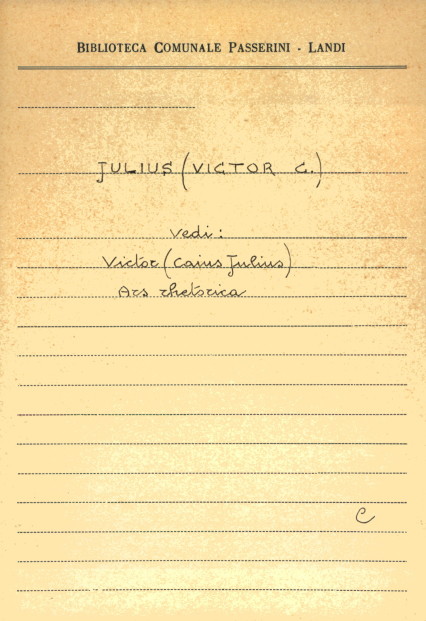 BIBLIOTECA COMUNALE PASSERINI - LANDI
JULIUS (VICTOR C.)
Vedi:
Victor (Caius Julius)
Ars rhetorica
C